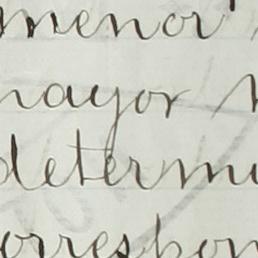 menor
mayor
determi
orrespon